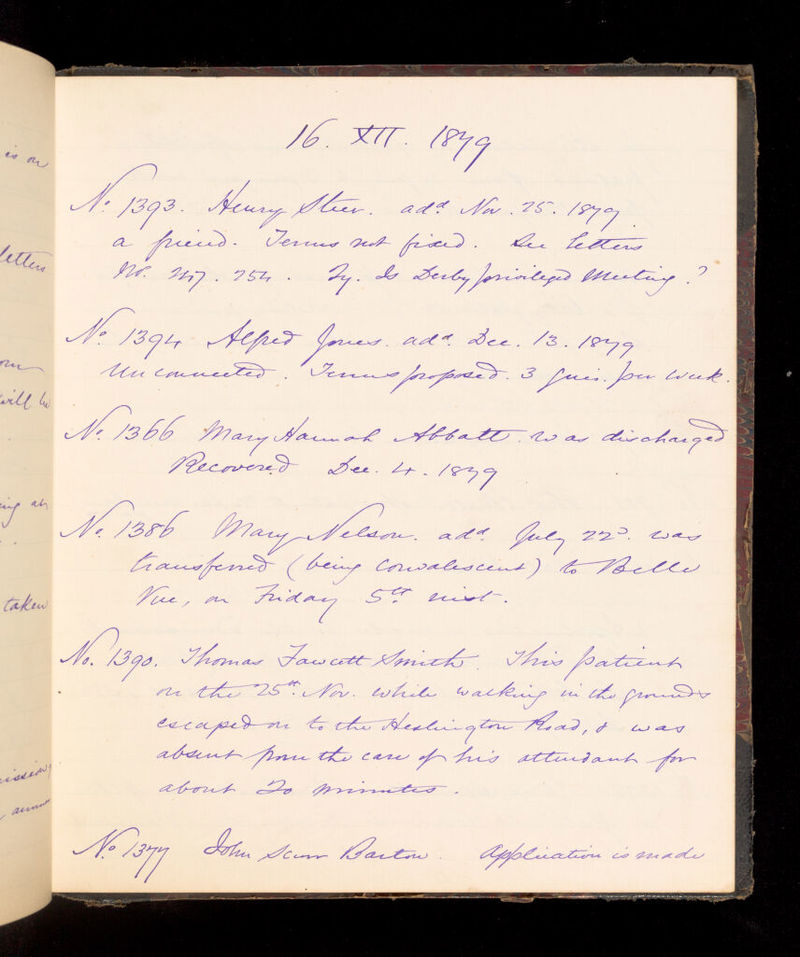 is on
letters
will be
taken
16. XII. 1879
No. 1393. Henry Steer. add. Nov. 25. 1879
a friend. Terms not fixed. See letters
No. 247. 254. Qy. Is Derby privileged Meeting?
No. 1394 Alfred Jones. add. Dec. 13. 1879
Unconnected. Terms proposed. 3 guis. per week.
No. 1366 Mary Hannah Abbatt. was discharged
Recovered Dec. 4. 1879
No. 1386 Mary Nelson. add. July 22d. was
transferred (being convalescent) to Belle
Vue, on Friday 5th inst.
No. 1390. Thomas Fawcett Smith. This patient
on the 25th. Nov. while walking in the grounds
escaped on to the Heslington Road, & was
absent from the care of his attendant for
about 20 minutes.
No 1377 John Scurr Barton. Application is made